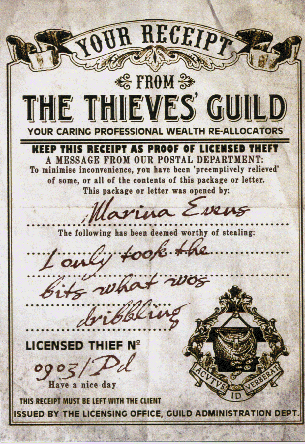 YOUR RECEIPT
FROM
THE THIEVES' GUILD
YOUR CARING PROFESSIONAL WEALTH RE-ALLOCATORS
KEEP THIS RECEIPT AS PROOF OF LICENSED THEFT
A MESSAGE FROM OUR POSTAL DEPARTMENT:
To minimise inconvenience, you have been 'preemptively relieved'
of some, or all of the contents of this package or letter.
This package or letter was opened by:
Marina Evens
The following has been deemed worthy of stealing:
I only took the
bits what was
dribbling
LICENSED THIEF Nº
0903/Dd
Have a nice day
ACVTVS ID VERBERAT
THIS RECEIPT MUST BE LEFT WITH THE CLIENT
ISSUED BY THE LICENSING OFFICE, GUILD ADMINISTRATION DEPT.